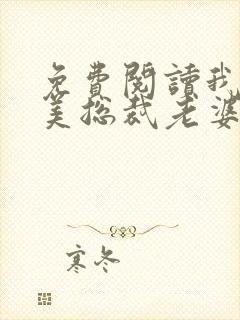 免費閱讀我
美总裁老婆
寒冬